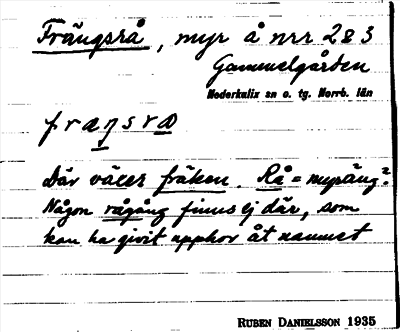 Frängsrå, myr å nrr 283
Gammelgården
Nederkalix sn o. tg. Norrb. län
fræŋsræ
Där växer fräken. Rå = myräng?.
Någon rågång finns ej där, som
kan ha givit upphov åt namnet
RUBEN DANIELSSON 1935